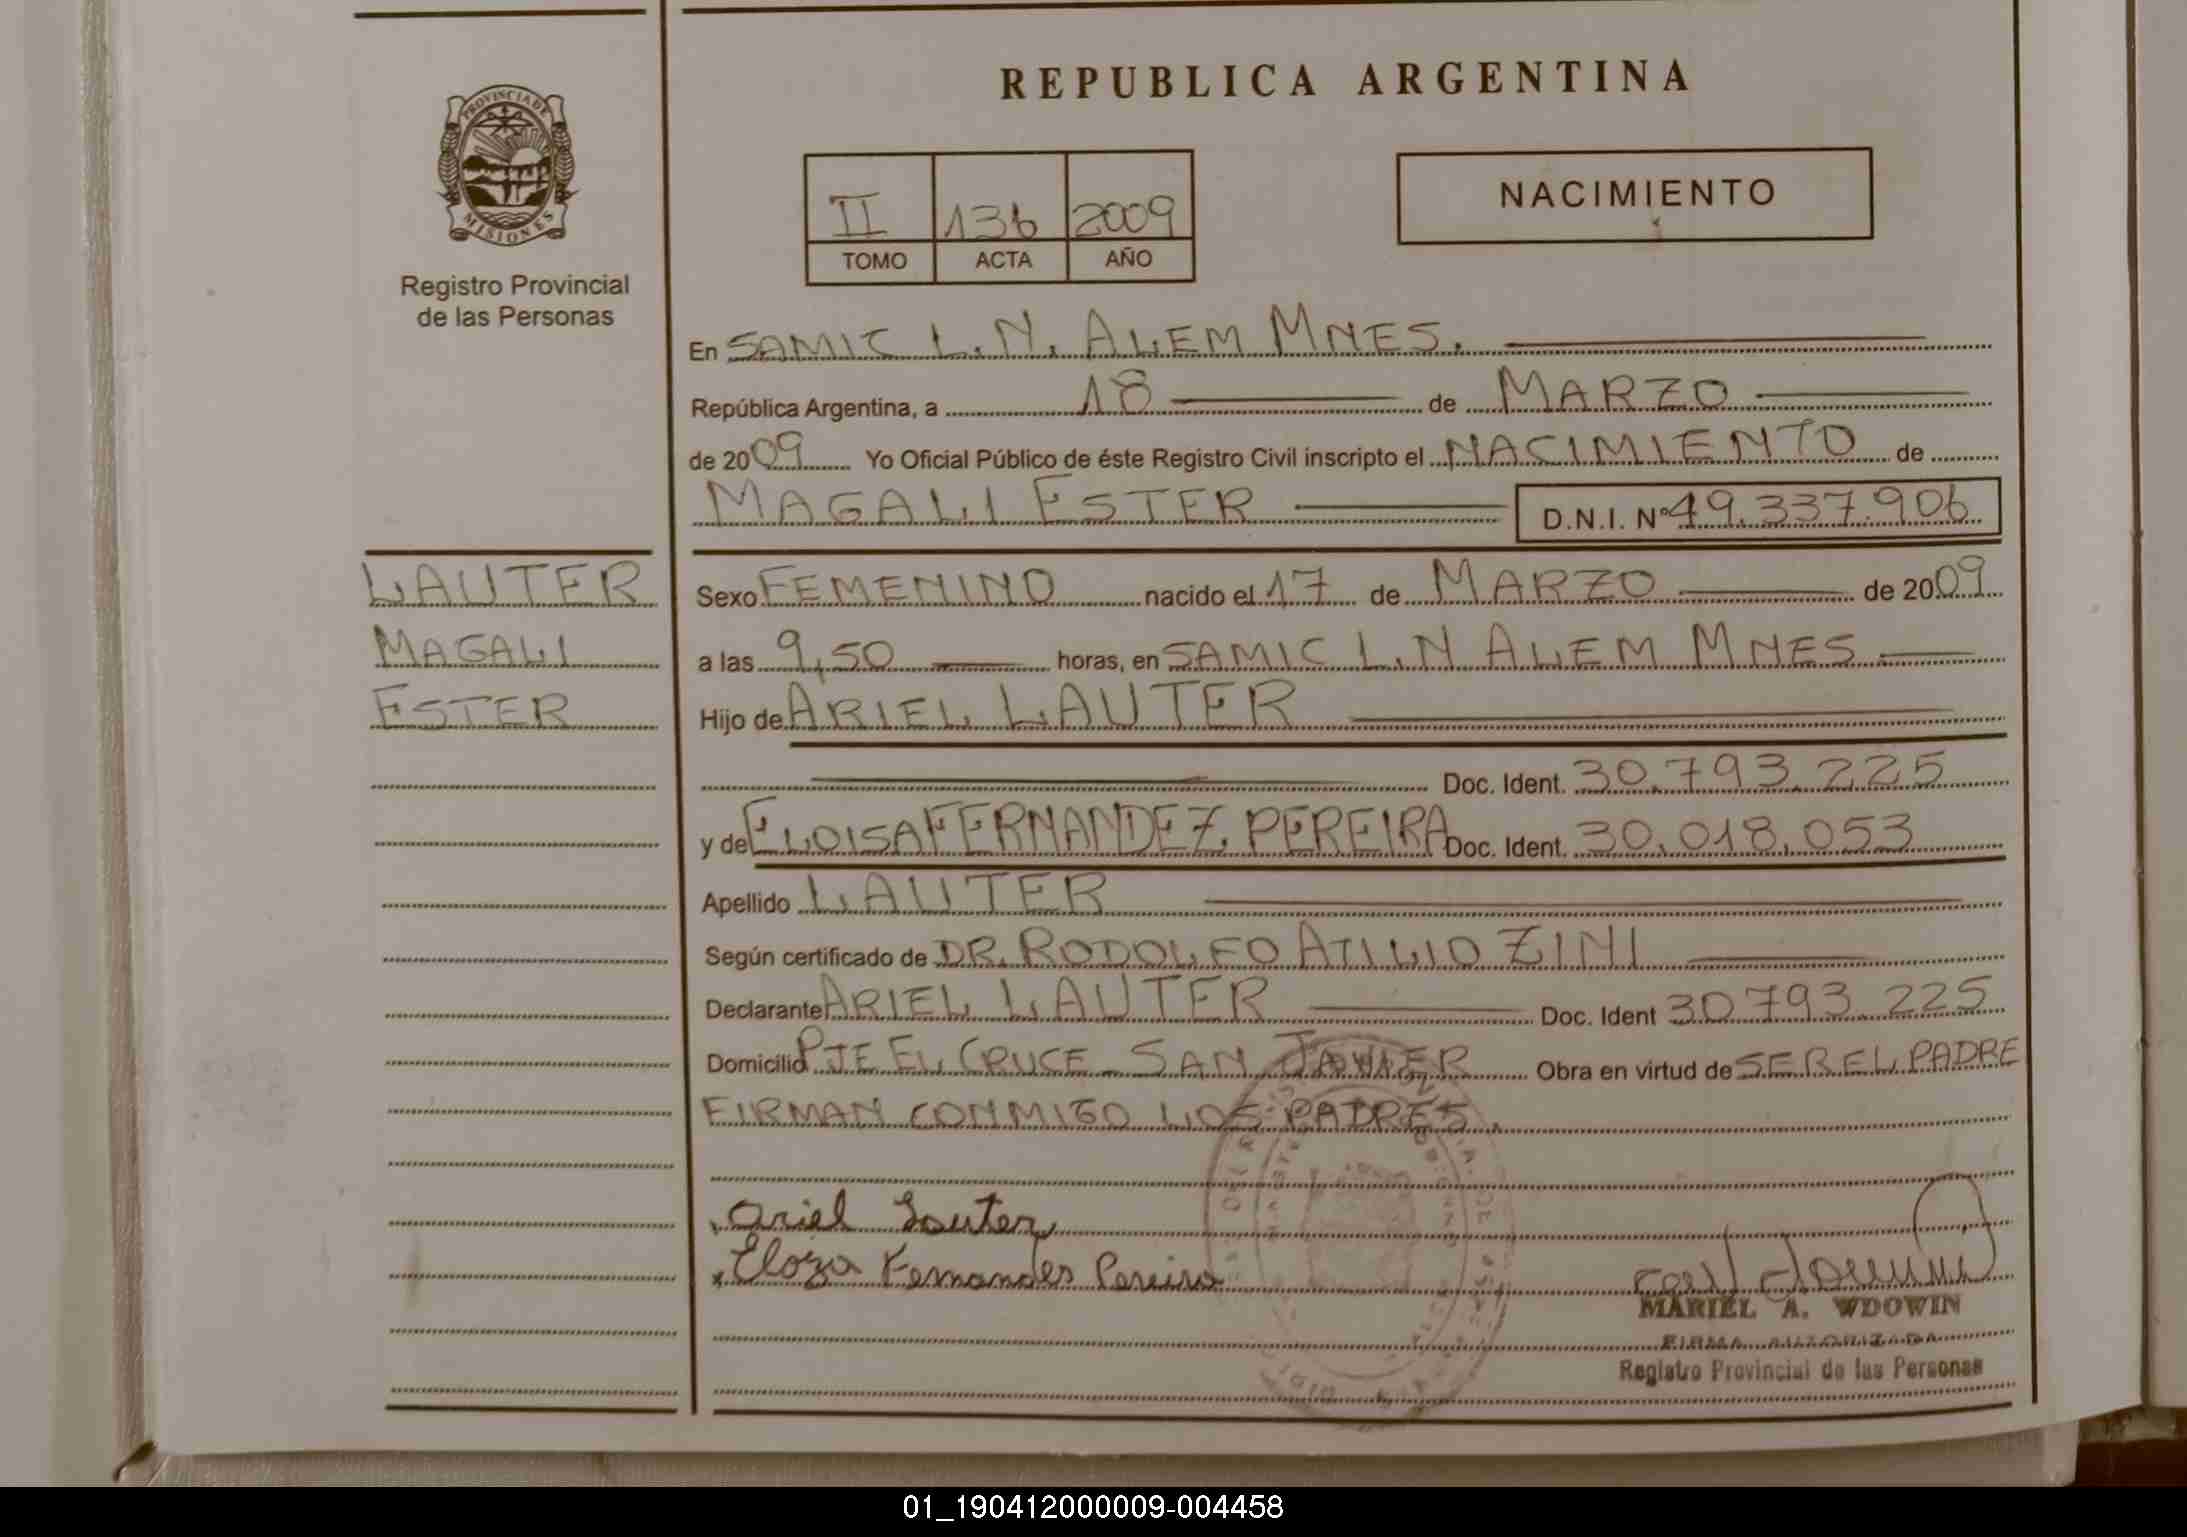 REPUBLICA ARGENTINA
PROVINCIA DE
MISIONES
Registro Provincial
de las Personas
II 136 2009
TOMO ACTA AÑO
NACIMIENTO
En SAMIC L.N. ALEM MNES.
República Argentina, a 18 de MARZO
de 2009 Yo Oficial Público de éste Registro Civil inscripto el NACIMIENTO de
MAGALI ESTER D.N.I. Nº 49.337.906
LAUTER
MAGALI
ESTER
Sexo FEMENINO nacido el 17 de MARZO de 2009
a las 9,50 horas, en SAMIC L.N ALEM MNES
Hijo de ARIEL LAUTER
Doc. Ident. 30.793.225
y de ELOISA FERNANDEZ PEREIRA Doc. Ident. 30.018.053
Apellido LAUTER
Según certificado de DR. RODOLFO ATILIO ZINI
Declarante ARIEL LAUTER Doc. Ident 30.793.225
Domicilio PJE EL CRUCE - SAN JAVIER Obra en virtud de SER EL PADRE
FIRMAN CONMIGO LOS PADRES.
Ariel Lauter
Eloza Fernandes Pereira
MARIEL A. WDOWIN
FIRMA AUTORIZADA
Registro Provincial de las Personas
01_190412000009-004458